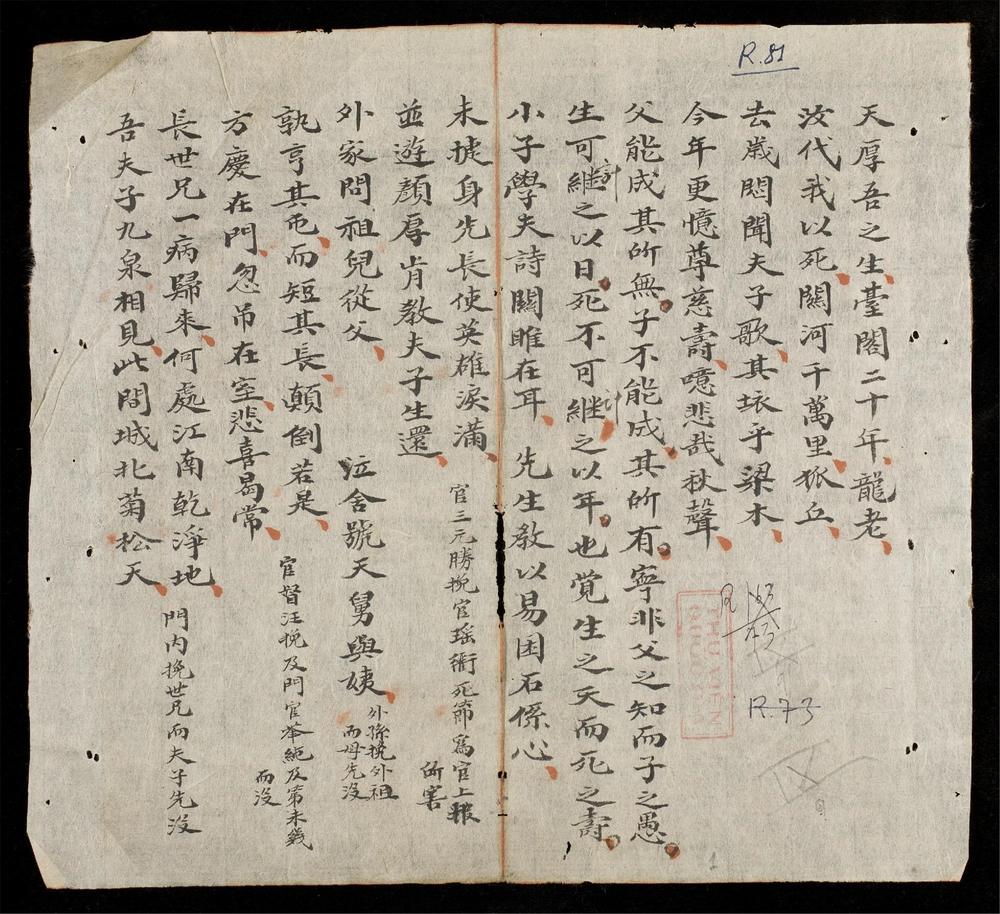 R.81
天厚吾之生臺閣二十年龍老
汝代我以死關河千萬里狐丘
去歲悶聞夫子歌其壞乎梁木
今年更憶尊慈壽噫悲哉秋聲
父能成其所無子不能成其所有寧非父之知而子之愚
生可継之以日死不可継之以年也覚生之夭而死之壽
計
計
小子學夫詩關雎在耳 先生教以易困石係心
未㨿身先長使英雄淚滿 官三元勝挽官瑶衛死節爲官上報
所害
並遊顏厚肯教夫子生還
外家問祖兒從父 泣舍號天舅與姨 外孫挽外祖
而母先没
孰亨其屯而短其長顛倒若是 官督汪挽及門官舉絶及第未幾
而没
方慶在門忽吊在室悲喜曷常
長世兄一病歸來何處江南乾淨地 門内挽世兄而夫子先没
吾夫子九泉相見此間城北菊松天
THU VIEN
R.73